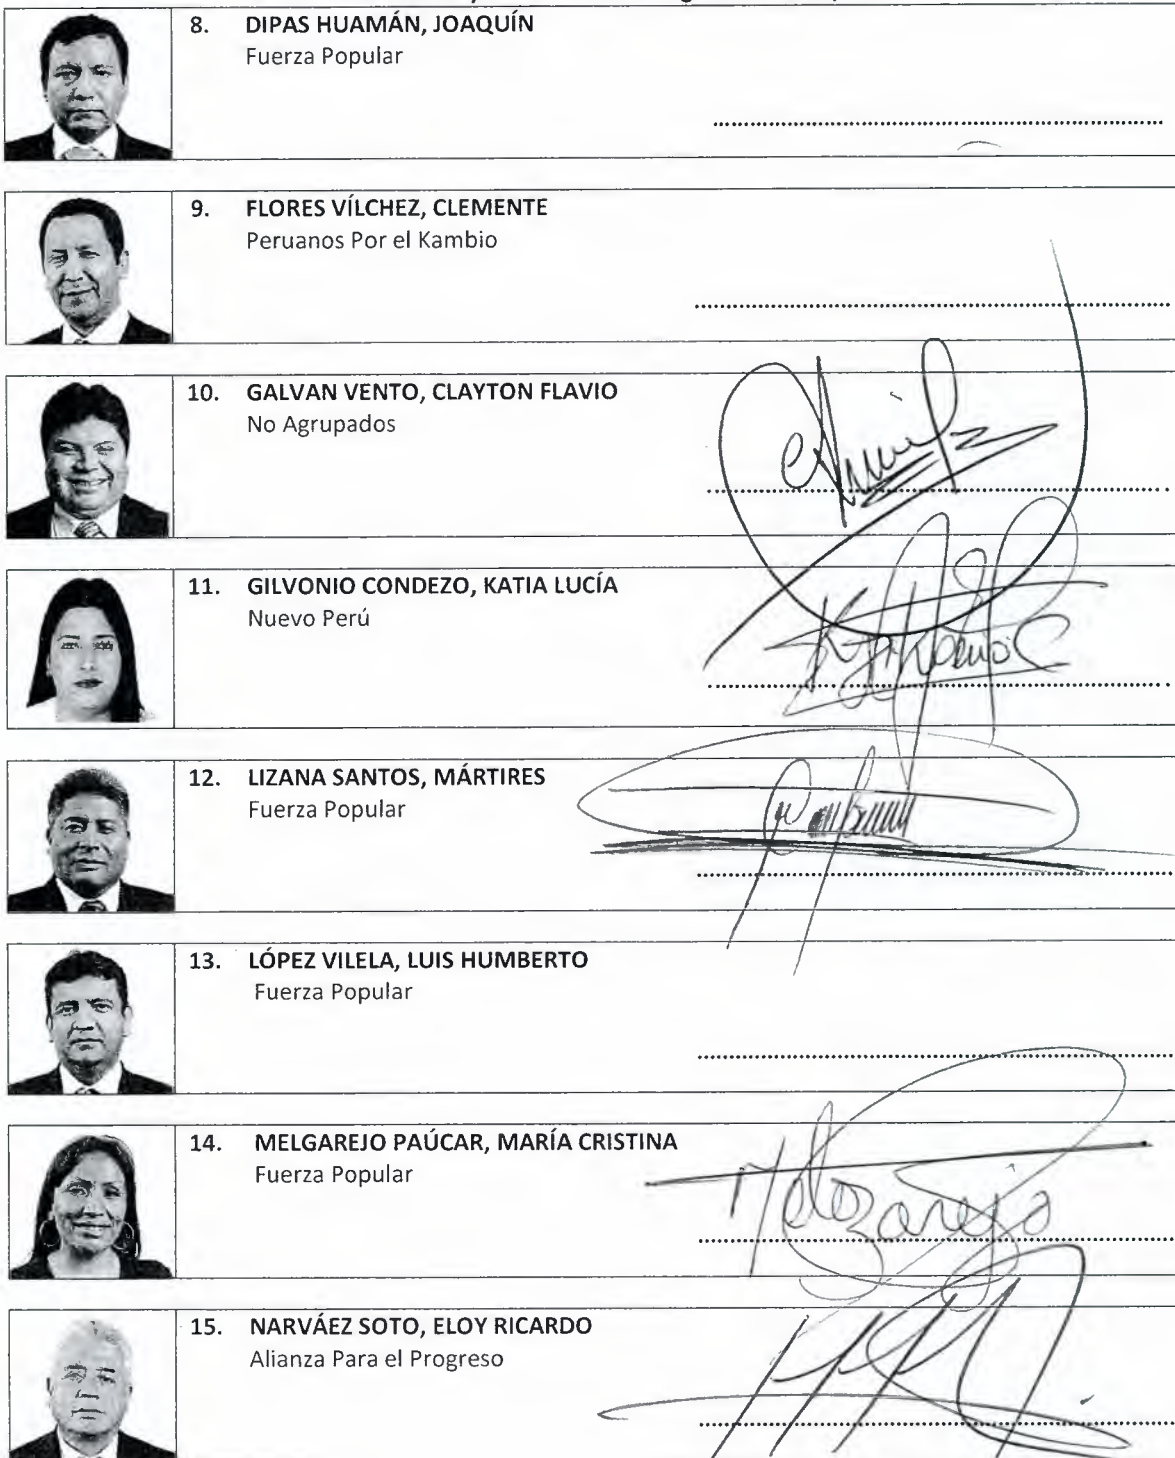 8. DIPAS HUAMÁN, JOAQUÍN
Fuerza Popular
9. FLORES VÍLCHEZ, CLEMENTE
Peruanos Por el Kambio
10. GALVAN VENTO, CLAYTON FLAVIO
No Agrupados
11. GILVONIO CONDEZO, KATIA LUCÍA
Nuevo Perú
12. LIZANA SANTOS, MÁRTIRES
Fuerza Popular
13. LÓPEZ VILELA, LUIS HUMBERTO
Fuerza Popular
14. MELGAREJO PAÚCAR, MARÍA CRISTINA
Fuerza Popular
Melgarejo
15. NARVÁEZ SOTO, ELOY RICARDO
Alianza Para el Progreso